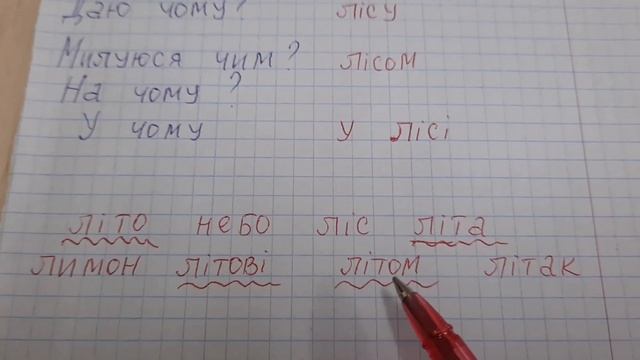 Даю чому? лісу
Милуюся чим? лісом
На чому?
У чому у лісі
літо небо ліс літа
лимон літові літом літак